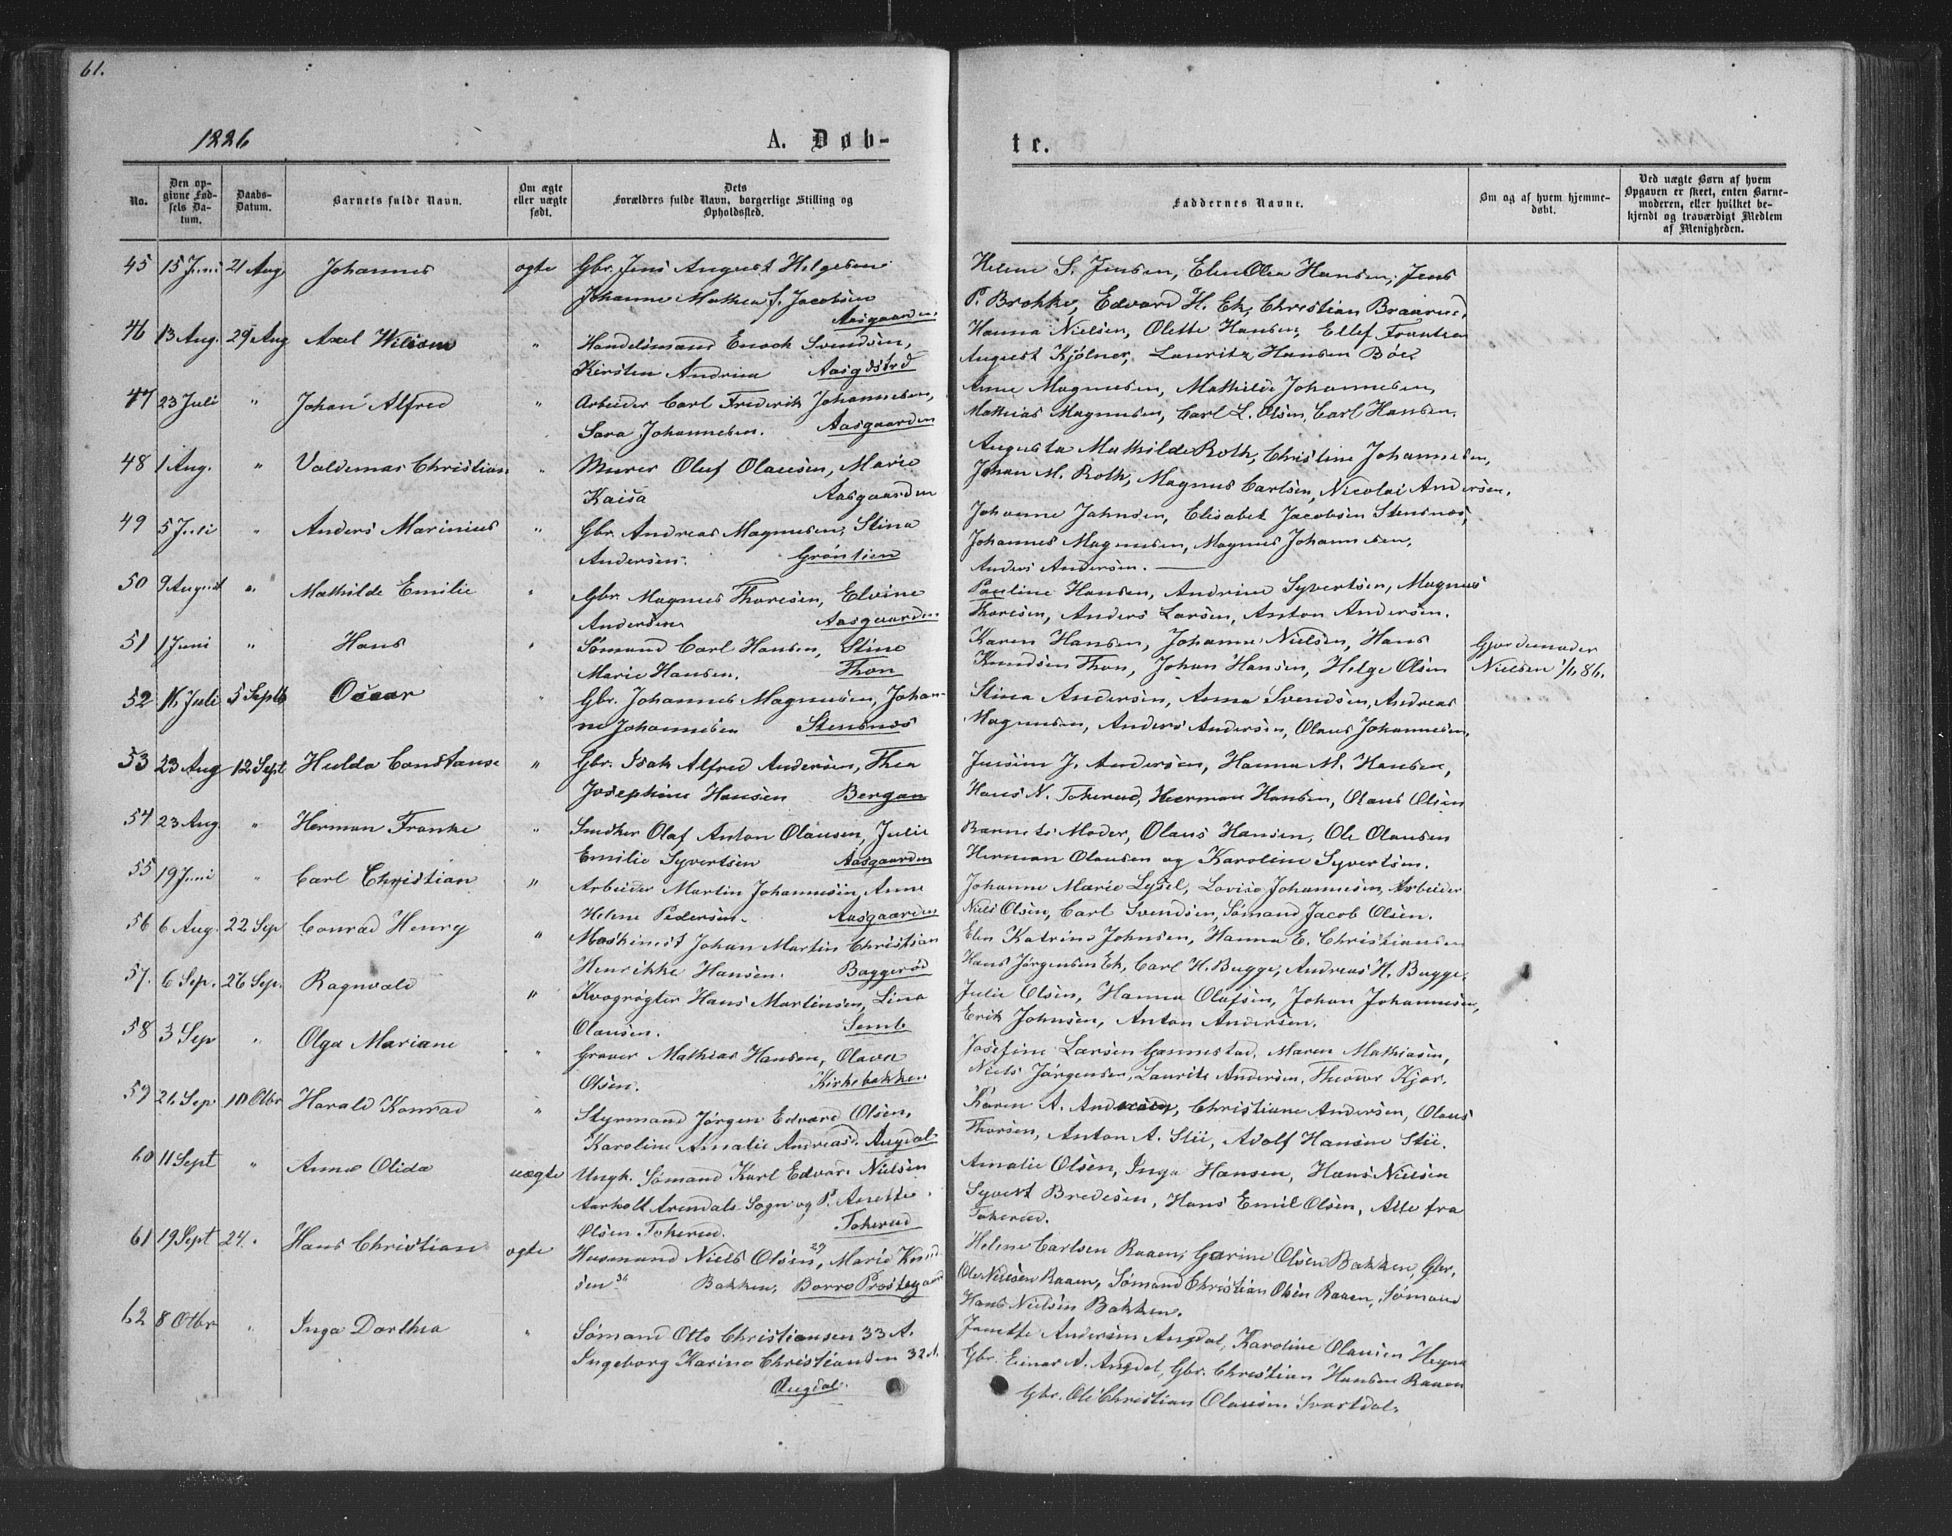 61.
1886
A. Døb-
te.
No.
Den op-
givne Fød-
sels Da-
tum.
Daabs-
Datum.
Barnets fulde Navn.
Om ægte
eller uægte
født.
Dets
Forældres fulde Navn, borgerlige Stilling og
Opholdssted.
Faddernes Navne.
Om og af hvem hjemme-
døbt.
Ved uægte Børn af hvem
Opgaven er skeet, enten Barne-
moderen, eller hvilket be-
kjendt og troværdigt Medlem
af Menigheden.
45 15 Juni 21 Aug. Johannes ægte Gbr. Jens August Helgesen
Johanne Mathea f. Jacobsen
Aasgaarden
Helene S. Jensen, Elen Olea Hansen, Jens
P. Brokke, Edvard H. Ek, Christian Braarud.
46 13 Aug. 29 Aug Axel Wiliam " Handelsmand Enock Svendsen,
Kirsten Andrina Aasgdstrd
Hanna Nielsen, Olette Hansen, Ellef Frantsen
August Kjölner, Lauritz Hansen Böe.
47 23 Juli " Johan Alfred " Arbeider Carl Frederik Johannesen,
Sara Johannesen. Aasgaarden
Anne Magnusen, Mathilde Johannesen,
Mathias Magnusen, Carl L. Olsen, Carl Hansen.
48 1 Aug. " Valdemar Christian " Murer Oluf Olausen, Marie
Kaisa Aasgaarden
Augusta Mathilde Roth, Christine Johannesen,
Johan M. Roth, Magnus Carlsen, Nicolai Andersen.
49 5 Juli " Anders Marinius " Gbr. Andreas Magnusen, Stina
Andersen. Gröntien
Johanne Jahnsen, Elisabet Jacobsen Stensnæs,
Johannes Magnusen, Magnus Johannesen,
Anders Andersen.
50 9 August " Mathilde Emilie " Gbr. Magnus Thoresen, Elvine
Andersen Aasgaarden
Pauline Hansen, Andrine Syvertsen, Magnus
Thoresen, Anders Larsen, Anton Andersen.
51 1 Juni " Hans " Sömand Carl Hansen, Stine
Marie Hansen. Thon
Karen Hansen, Johanne Nielsen, Hans
Knudsen Thon, Johan Hansen, Helge Olsen
Gjordemoder
Nielsen 1/6 86.
52 16 Juli 5 Septb Oscar " Gbr. Johannes Magnusen, Johan-
ne Johannesen Stensnæs
Stina Andersen, Anna Svendsen, Andreas
Magnusen, Anders Andersen, Olaus Johannesen,
53 23 Aug 12 Sept Hulda Constanse " Gbr. Isak Alfred Andersen, Thea
Josephine Hansen Bergan
J. Andersen, Hanna M. Hansen,
Hans N. Tokerud, Herman Hansen, Olaus Olsen
54 23 Aug. " Herman Franke " Snedker Olaf Anton Olausen, Julie
Emilie Syvertsen Aasgaarden
Barnets Moder, Olaus Hansen, Ole Olausen
Herman Olausen og Karoline Syvertsen.
55 19 Juni " Carl Christian " Arbeider Martin Johannesen, Anne
Helene Pedersen. Aasgaarden
Johanne Marie Lysel, Lovise Johannesen, Arbeider
Niels Olsen, Carl Svendsen, Sömand Jacob Olsen.
56 6 Aug. 22 Sep Conrad Henry " Maskinist Johan Martin Christian
Henrikke Hansen. Baggeröd
Elen Katrine Johnsen, Hanna E. Christiansen
Hans Jörgensen Ek, Carl H. Bugge, Andreas H. Bugge.
57. 6 Sep. 26 Sep. Ragnvald " Kvægrögter Hans Martinsen, Lina
Olausen. Semb
Julie Olsen, Hanna Olafsen, Johan Johannesen,
Erik Johnsen, Anton Andersen.
58 3 Sep " Olga Mariane " Graver Mathias Hansen, Olava
Olsen. Kirkebakken
Josefine Larsen Gannestad, Maren Mathiasen,
Niels Jörgensen, Laurits Andersen, Kjær.
59 26 Sep 10 Otbr Harald Konrad " Styrmand Jörgen Edvard Olsen,
Karoline Amalie Andreasd. Augdal
Karen A. Andersen, Christiane Andersen, Olaus
Thorsen, Anton A. Stii, Adolf Hansen Stii.
60 11 Sept " Anna Olida uægte Ungk. Sömand Karl Edvard Nielsen
Aarholt Arendals Sogn og P. Anette
Olsen Tokerud. Tokerud
Amalie Olsen, Inga Hansen, Hans Nielsen
Syvert Bredesen, Hans Emil Olsen, Alle fra
Tokerud.
61 19 Sept 24. Hans Christian ægte Husmand Niels Olsen 29, Marie Knud-
sen 36 Bakken, Borre Præstegaard
Helene Carlsen Raaen, Garine Olsen Bakken, Gbr.
Ole Nielsen Raaen, Sömand Christian Olsen Raaen, Sömand
Hans Nielsen Bakken.
62 8 Otbr " Inga Dorthea " Sömand Otto Christiansen 33 A.
Ingeborg Karine Christiansen 32 A.
Augdal.
Janette Andersen Augdal, Karoline Olausen
Gbr. Einar A. Augdal, Gbr. Christian Hansen Raaen
Gbr. Ole Christian Olausen Svartdal.